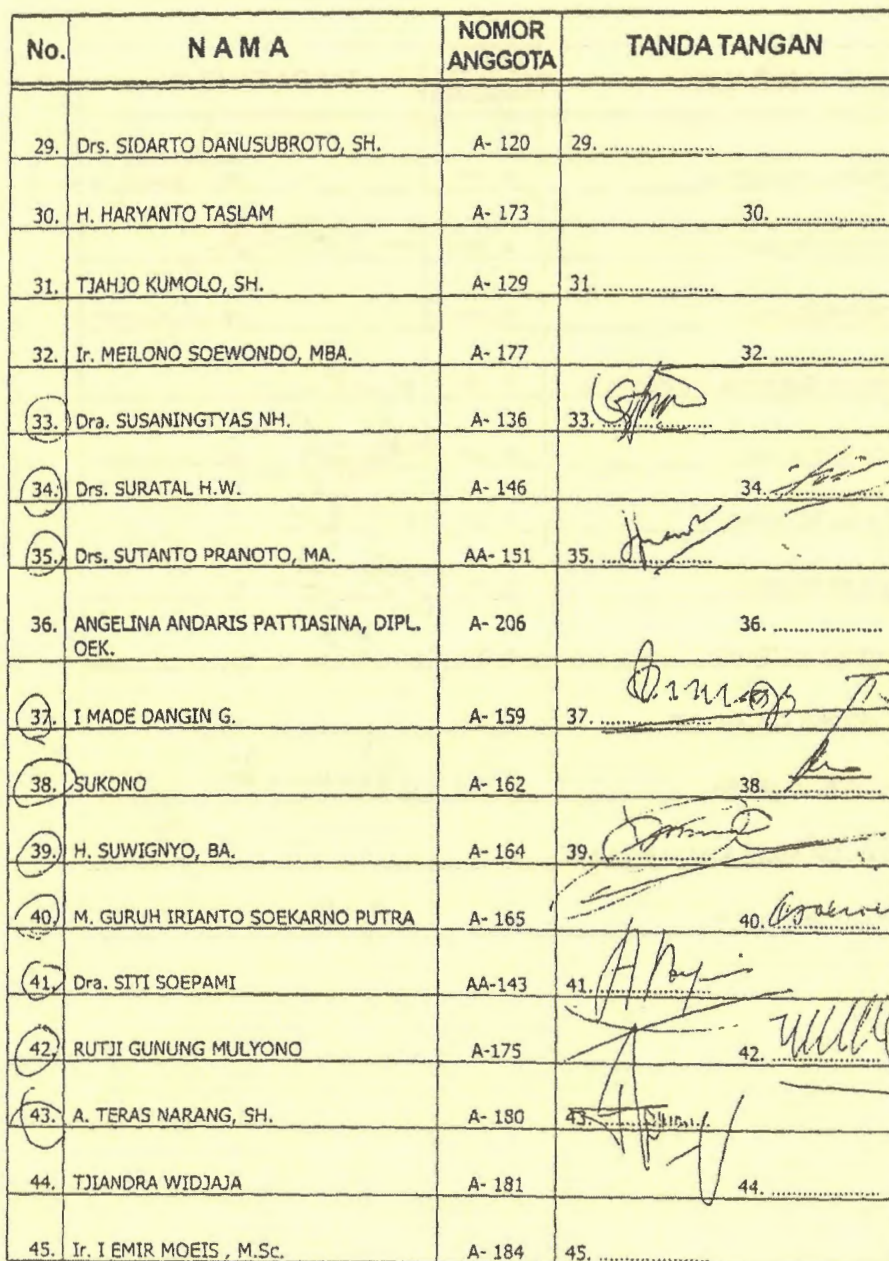 No. NAMA NOMOR ANGGOTA TANDA TANGAN
29. Drs. SIDARTO DANUSUBROTO, SH. A- 120 29. ....................
30. H. HARYANTO TASLAM A- 173 30. ....................
31. TJAHJO KUMOLO, SH. A- 129 31. ....................
32. Ir. MEILONO SOEWONDO, MBA. A- 177 32. ....................
33. Dra. SUSANINGTYAS NH. A- 136 33. ....................
34. Drs. SURATAL H.W. A- 146 34. ....................
35. Drs. SUTANTO PRANOTO, MA. AA- 151 35. ....................
36. ANGELINA ANDARIS PATTIASINA, DIPL. A- 206 36. ....................
OEK.
37. I MADE DANGIN G. A- 159 37. ....................
38. SUKONO A- 162 38. ....................
39. H. SUWIGNYO, BA. A- 164 39. ....................
40. M. GURUH IRIANTO SOEKARNO PUTRA A- 165 40. ....................
41. Dra. SITI SOEPAMI AA-143 41. ....................
42. RUTJI GUNUNG MULYONO A-175 42. ....................
43. A. TERAS NARANG, SH. A- 180 43. ....................
44. TJIANDRA WIDJAJA A- 181 44. ....................
45. Ir. I EMIR MOEIS , M.Sc. A- 184 45. ....................